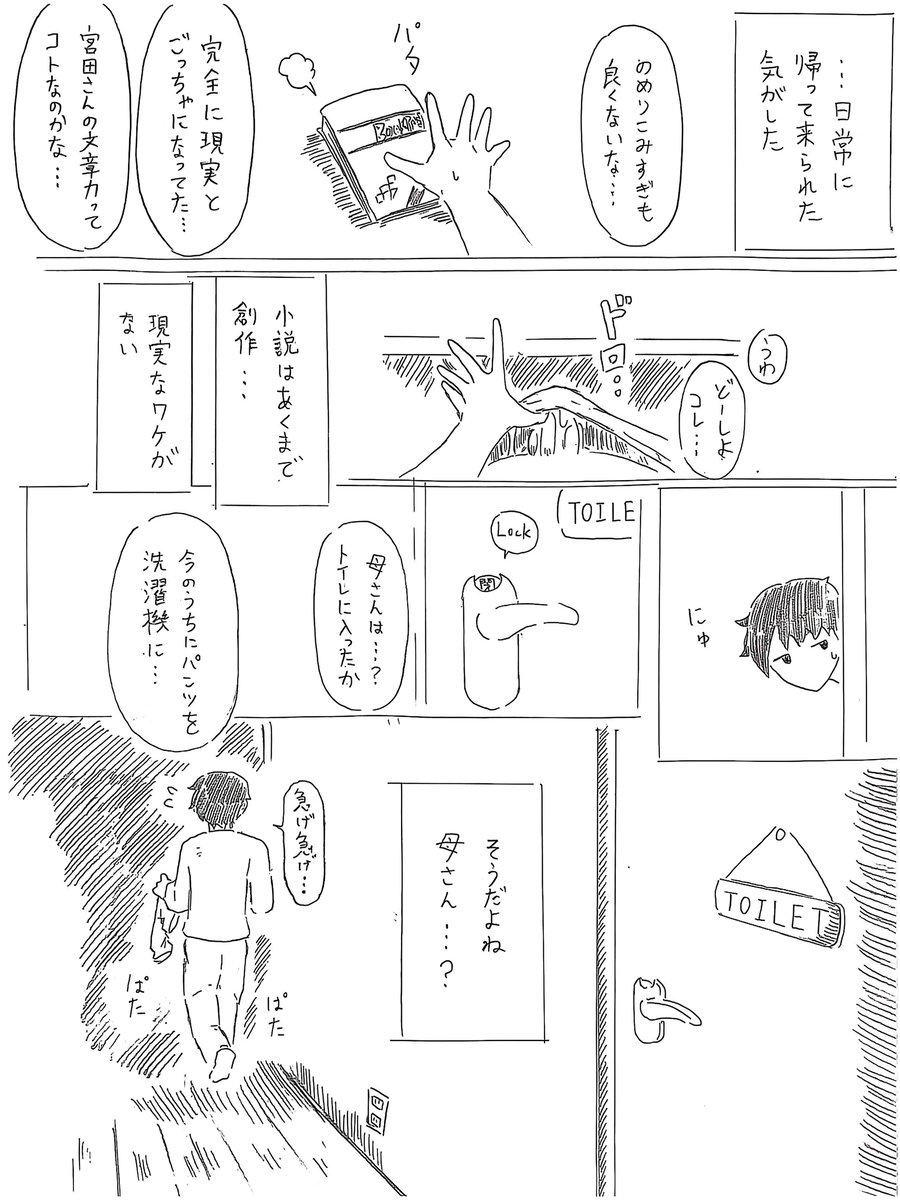 …日常に
帰って来られた
気がした
のめりこみすぎも
良くないな…
パタ
完全に現実と
ごっちゃになってた…
宮田さんの文章力って
コトなのかな…
うわ
どーしよ
コレ…
ドロ。。
小説はあくまで
創作…
現実なワケが
ない
にゅ
TOILE
Lock
閉
母さんは…?
トイレに入ったか
今のうちにパンツを
洗濯機に…
TOILET
そうだよね
母さん…?
急げ急げ…
ぱた
ぱた